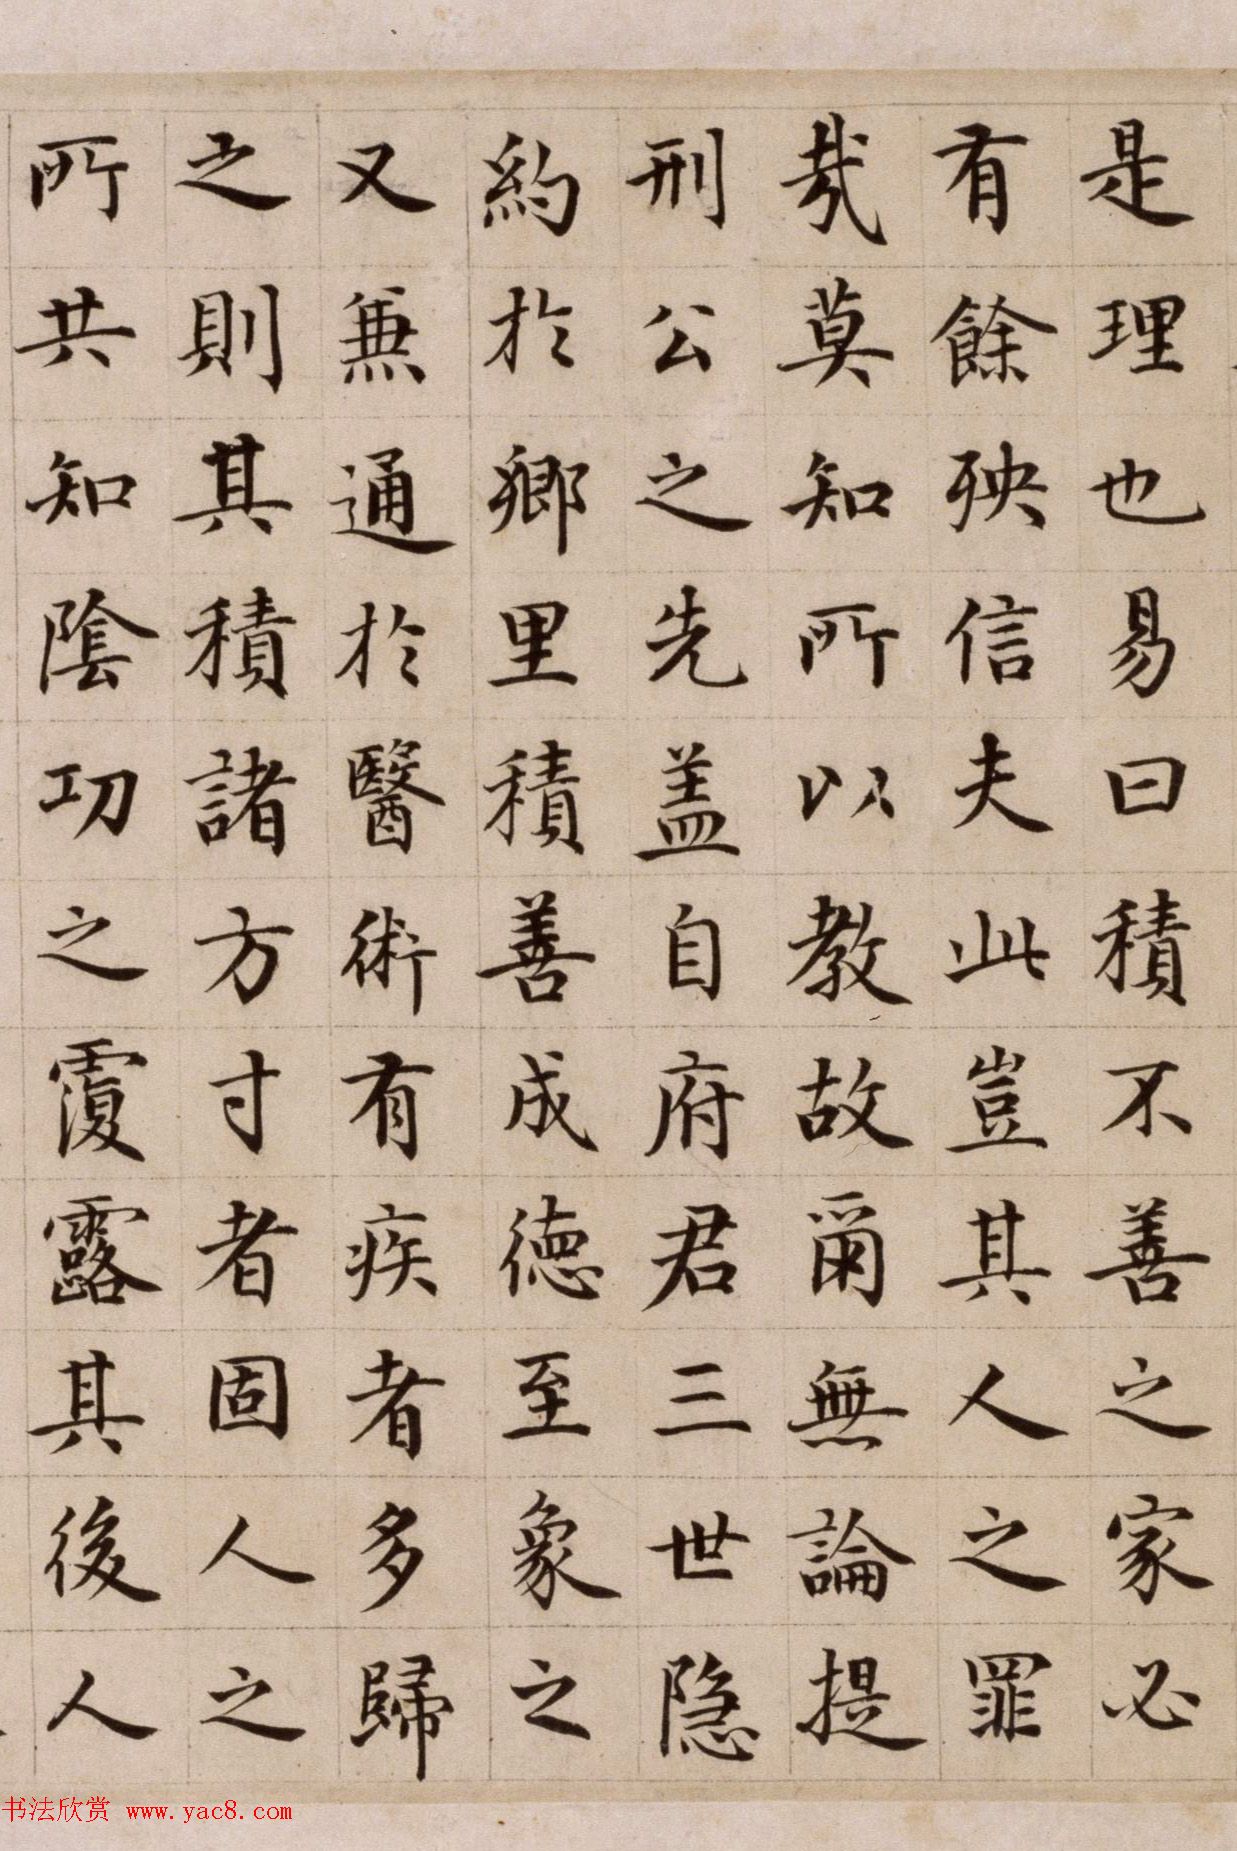 是理也易曰積不善之家必
有餘殃信夫此豈其人之罪
哉莫知所以教故爾無論提
刑公之先盖自府君三世隐
約於鄉里積善成德至象之
又兼通於醫術有疾者多歸
之則其積諸方寸者固人之
所共知陰功之覆露其後人
书法欣赏 www.yac8.com